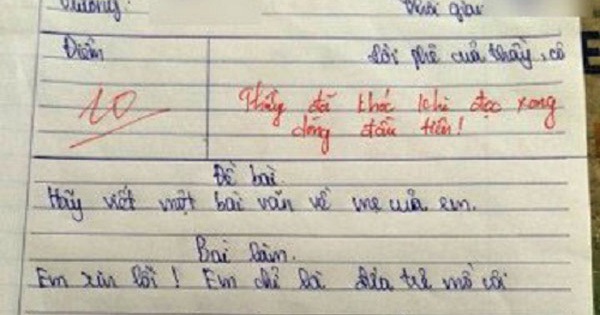 Trường:
Thời gian
Điểm
Lời phê của thầy, cô
10
Thầy đã khóc khi đọc xong
dòng đầu tiên!
Đề bài.
Hãy viết một bài văn về mẹ của em.
Bài làm.
Em xin lỗi ! Em chỉ là đứa trẻ mồ côi